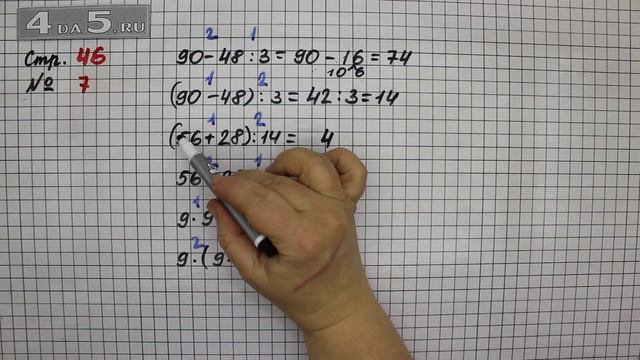 4 ДА 5.RU
Стр. 46
№ 7
2 1
90-48:3=90-16=74
10 6
1 2
(90-48):3=42:3=14
1 2
(56+28):14= 4
1
56
1
9·9
2
9·(9·